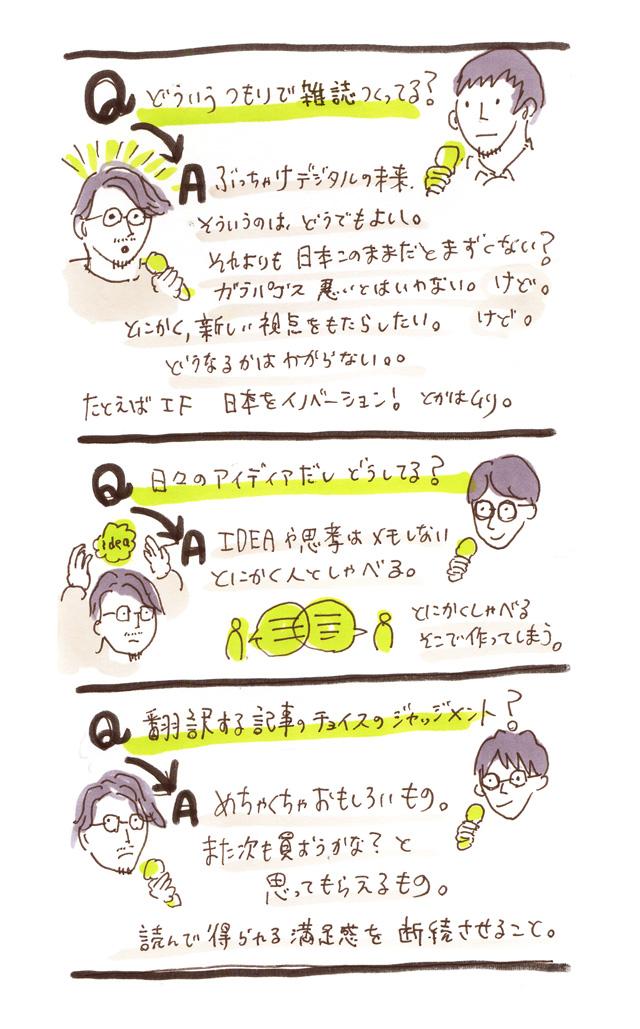 Q どういうつもりで雑誌つくってる?
A ぶっちゃけデジタルの未来、
そういうのは、どうでもよいし。
それよりも 日本このままだとまずくない?
ガラパゴス 悪いとはいわない。 けど。
とにかく、新しい視点をもたらしたい。 けど。
どうなるかはわからない。。
たとえば IF 日本をイノベーション! とかはムリ。
Q 日々のアイディアだし どうしてる?
idea
A IDEAや思考はメモしない
とにかく人としゃべる。
とにかくしゃべる
そこで作ってしまう。
Q 翻訳する記事のチョイスのジャッジメント?
A めちゃくちゃおもしろいもの。
また次も買おうかな?と
思ってもらえるもの。
読んで得られる満足感を 断続させること。